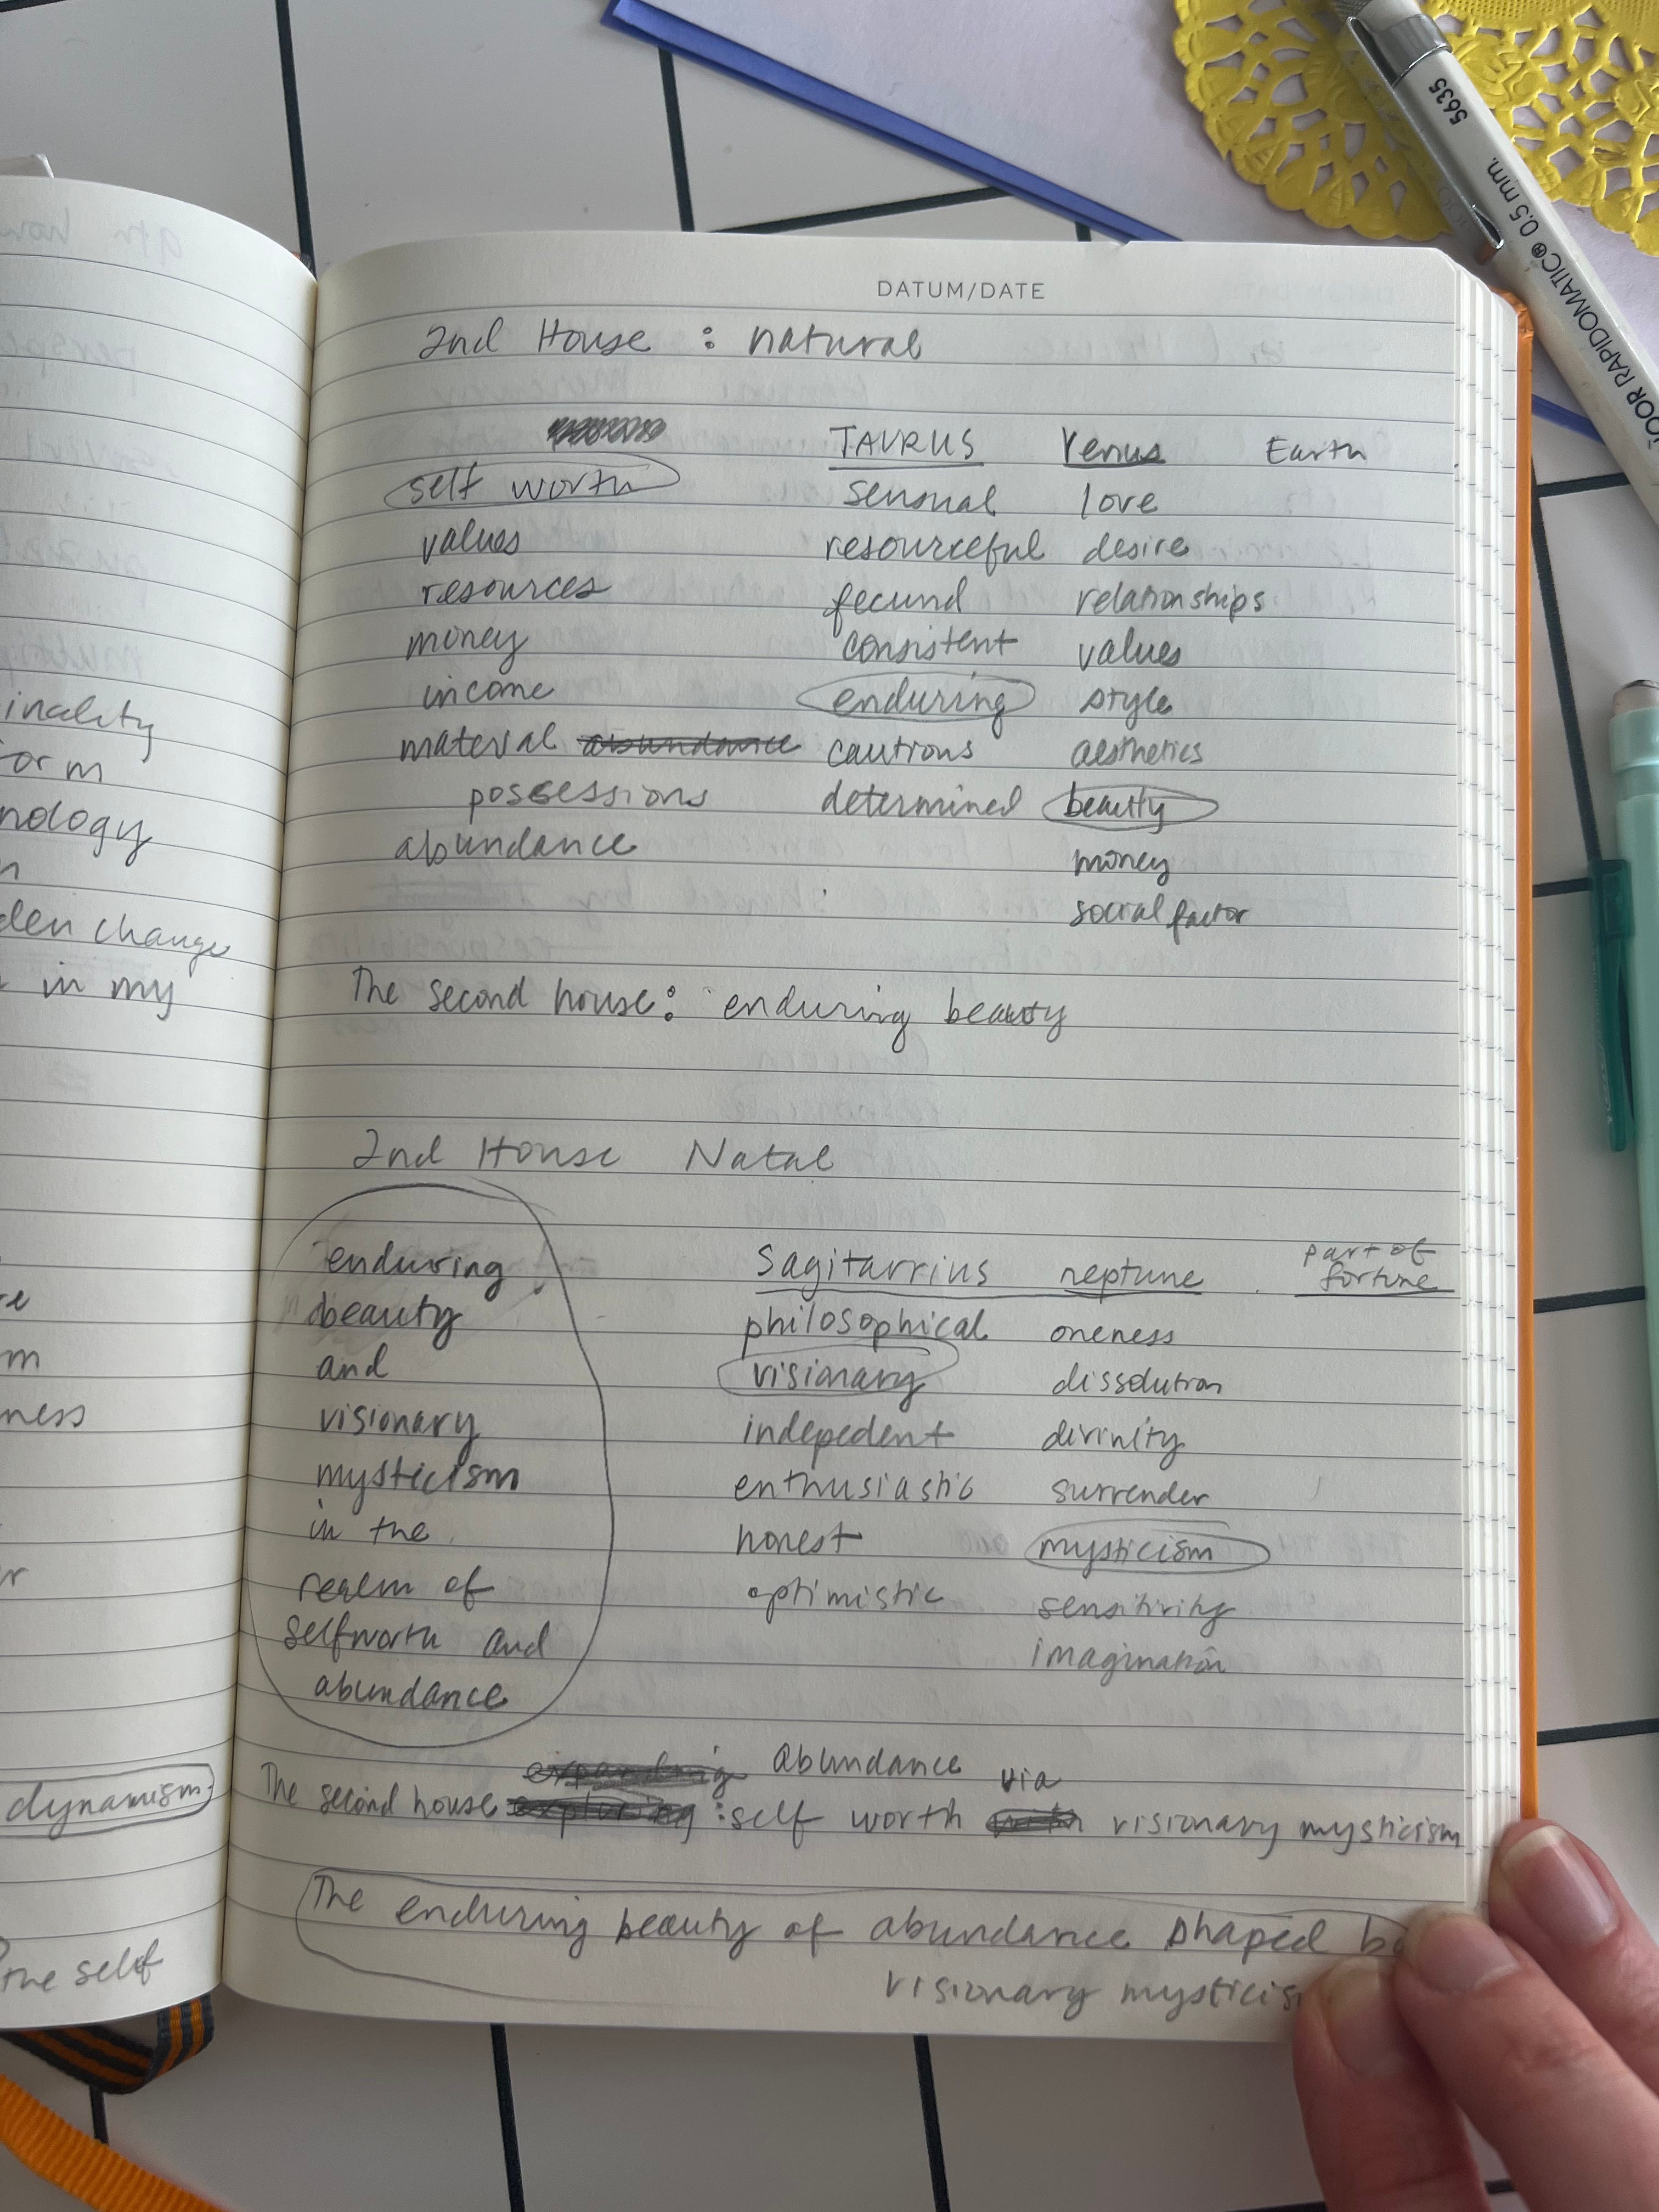 DATUM/DATE
2nd House : natural
TAURUS Venus Earth
self worth sensual love
values resourceful desire
resources fecund relationships
money consistent values
income enduring style
material abundance cautions aesthetics
possessions determined beauty
abundance money
social factor
The second house: enduring beauty
2nd House Natal
part of
enduring Sagitarrius neptune fortune
beauty philosophical oneness
and visionary dissolution
visionary indepedent divinity
mysticism enthusiastic surrender
in the honest mysticism
realm of optimistic sensitivity
selfworth and imagination
abundance
expanding abundance via
The second house exploring : self worth with visionary mysticism
The enduring beauty of abundance shaped
visionary
inality
orm
nology
n
den change
in my
m
ness
dynamism
the self
5635
0.5 mm.
RAPIDOMATIC®